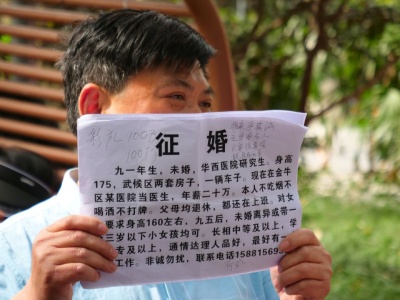 彩礼100万
征婚
九一年生，未婚，华西医院研究生。身高
175，武候区两套房子，一辆车子。现在在金牛
区某医院当医生，年薪二十万。本人不吃烟不
喝酒不打牌。父母均退休，都还在上班。对女
要求身高160左右，九五后，未婚离异或带一
三岁以下小女孩均可。长相中等及以上，学
专及以上，通情达理人品好，最好有一
工作。非诚勿扰，联系电话15881569